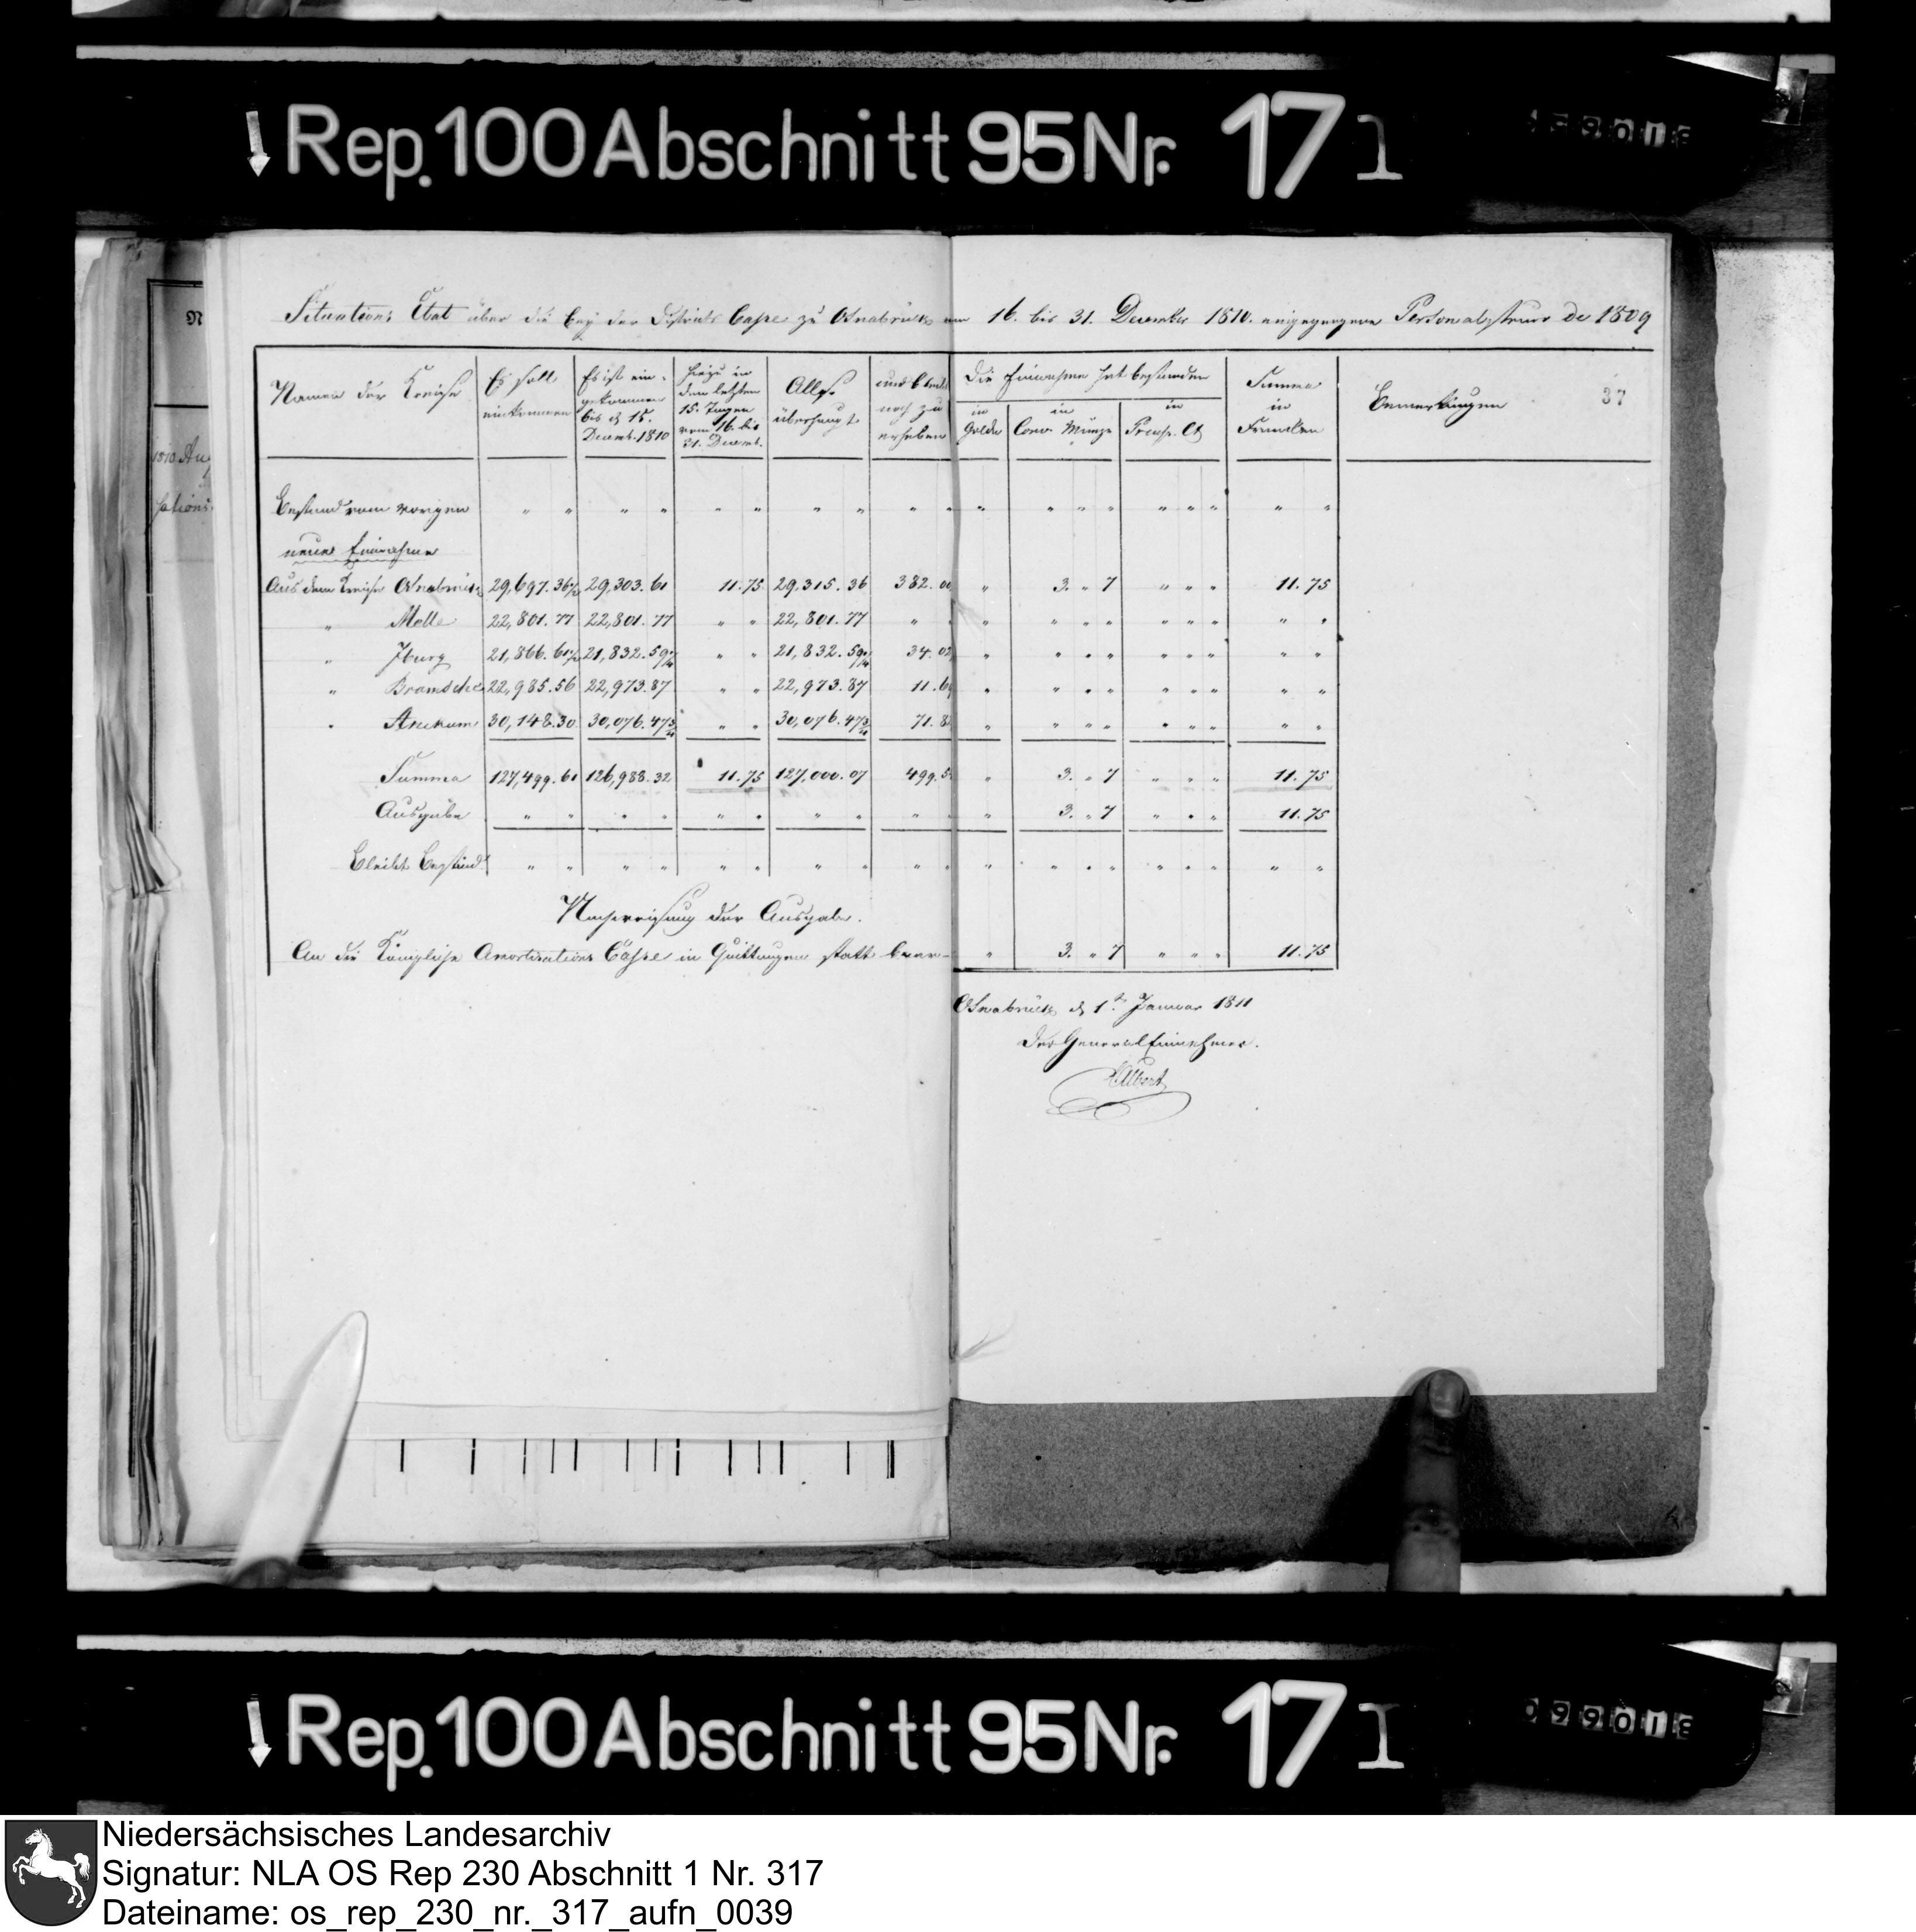 Rep. 100 Abschnitt 95 Nr. 17 1
Situations Etat über die bey der Districts Casse zu Osnabrück vom 16. bis 31. December 1810. eingegangene Personalsteuer de 1809
37
Namen der Kreise
Es soll einkommen
Es ist eingekommen bis d 15. Decemb. 1810
Hiezu in den letzten 15. Tagen vom 16. bis 31. Decemb.
Also überhaupt
und bleibt noch zu erheben
Die Einnahme hat bestanden
in Golde
in Conv. Münze
in Preuss. Ct
Summa in Francken
Bemerkungen
Bestand vom vorigen " " " " " " " " " " " " " " " " " " "
neue Einnahme
Aus dem Kreise Osnabrück 29,697.36 29,303.61 11.75 29,315.36 382.00 " 3. " 7 " " " 11.75
" Melle 22,801.77 22,801.77 " " 22,801.77 " " " " " " " " " " "
" Iburg 21,866.61 21,832.59 " " 21,832.59 34.02 " " " " " " " " "
" Bramsche 22,985.56 22,973.87 " " 22,973.87 11.6 " " " " " " " " "
" Ankum 30,148.30 30,076.47 " " 30,076.47 71.8 " " " " " " " " "
Summa 127,499.61 126,988.32 11.75 127,000.07 499.5 " 3. " 7 " " " 11.75
Ausgabe " " " " " " " " " " " 3. " 7 " " " 11.75
Bleibt Bestand " " " " " " " " " " " " " " " " " " "
Nachweisung der Ausgabe.
An die Königliche Amortisations Casse in Quittungen statt baar " 3. " 7 " " " 11.75
Osnabrück d 1t Januar 1811
Der General Einnehmer.
Albert
Rep. 100 Abschnitt 95 Nr. 17 1
Niedersächsisches Landesarchiv
Signatur: NLA OS Rep 230 Abschnitt 1 Nr. 317
Dateiname: os_rep_230_nr._317_aufn_0039